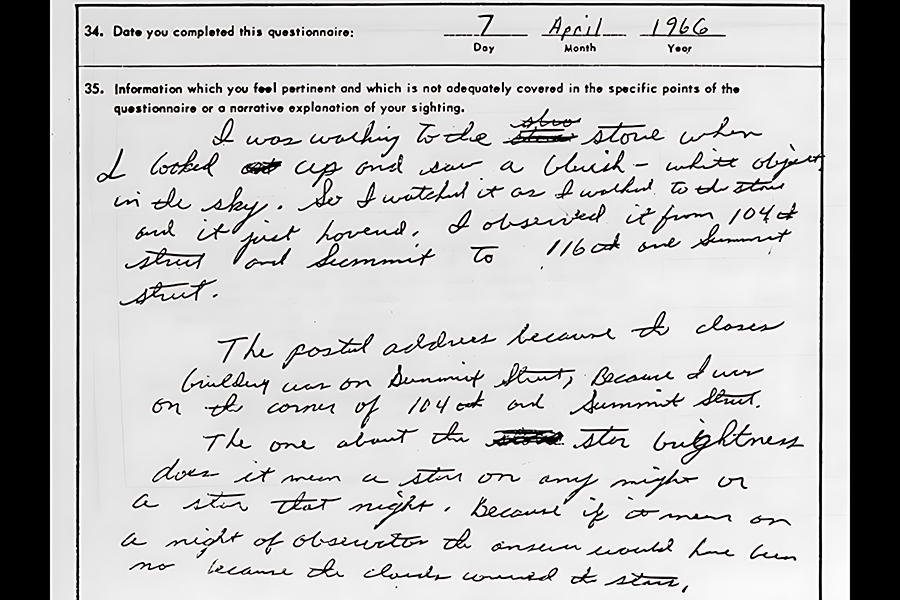 34. Date you completed this questionnaire: 7 April 1966
Day Month Year
35. Information which you feel pertinent and which is not adequately covered in the specific points of the
questionnaire or a narrative explanation of your sighting.
I was walking to the store when
I looked up and saw a bluish - white object
in the sky. So I watched it as I walked to the store
and it just hovered. I observed it from 104
street and Summit to 116 and Summit
street.
The postal address because the closes
building was on Summit Street, Because I was
on the corner of 104 and Summit Street.
The one about the star brightness
does it mean a star on any night or
a star that night. Because if it mean on
a night of observation the answer would have been
no because the clouds covered the stars.